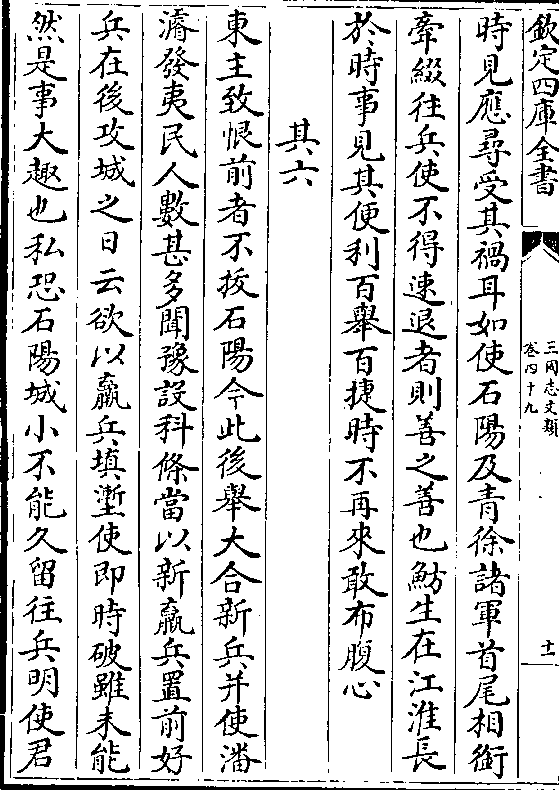 欽定四庫全書
三國志文類
卷四十九
十一
時見應尋受其禍耳如使石陽及青徐諸軍首尾相銜
牽綴往兵使不得速退者則善之善也魴生在江淮長
於時事見其便利百舉百捷時不再來敢布腹心
其六
東主致恨前者不拔石陽今此後舉大合新兵并使潘
濬發夷民人數甚多聞豫設科條當以新羸兵置前好
兵在後攻城之日云欲以羸兵填壍使即時破雖未能
然是事大趣也私恐石陽城小不能久留往兵明使君